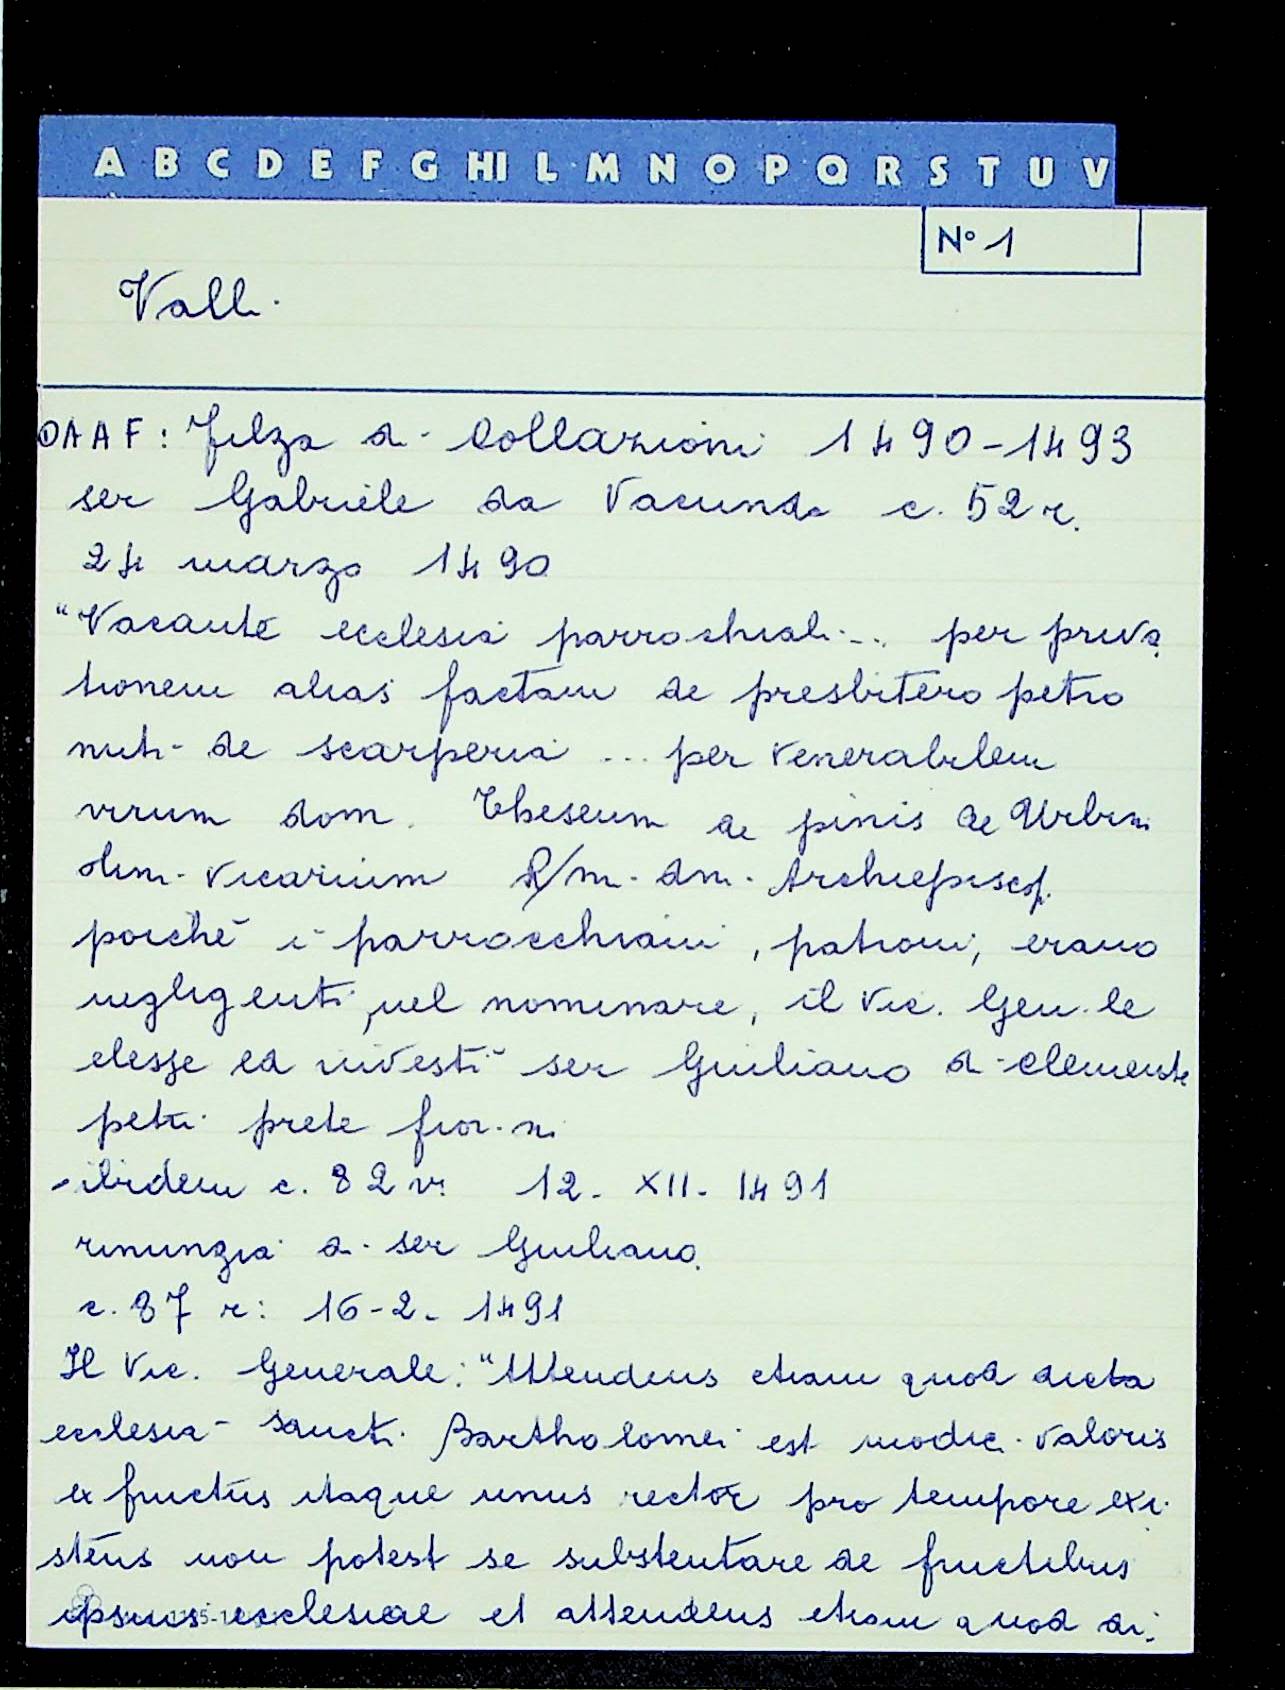 A B C D E F G HI L M N O P Q R S T U V
N° 1
Valli
AAF: Filza di Collazioni 1490-1493
ser Gabriele da Vacunda c. 52 r.
24 marzo 1490
"Vacante ecclesia parrochiali... per priva
tionem alias factam de presbitero petro
nuti de scarperia ... per venerabilem
virum dom. Theseum de pinis de Urbin
olim vicarium R/m. dni. Archiepiscop.
poiché i parrocchiani, patroni, erano
negligenti nel nominare, il Vic. Gen.le
elesse ed investì ser Giuliano di clemente
petri prete fior.no
- ibidem c. 82 v. 12. XII. 1491
rinunzia di ser Giuliano.
c. 87 r: 16-2. 1491
Il Vic. Generale: "Attendens etiam quod dicta
ecclesia sancti Bartholomei est modici valoris
ex fructus itaque unus rector pro tempore exi
stens non potest se substentare de fructibus
ipsius ecclesiae et attendens etiam quod di-